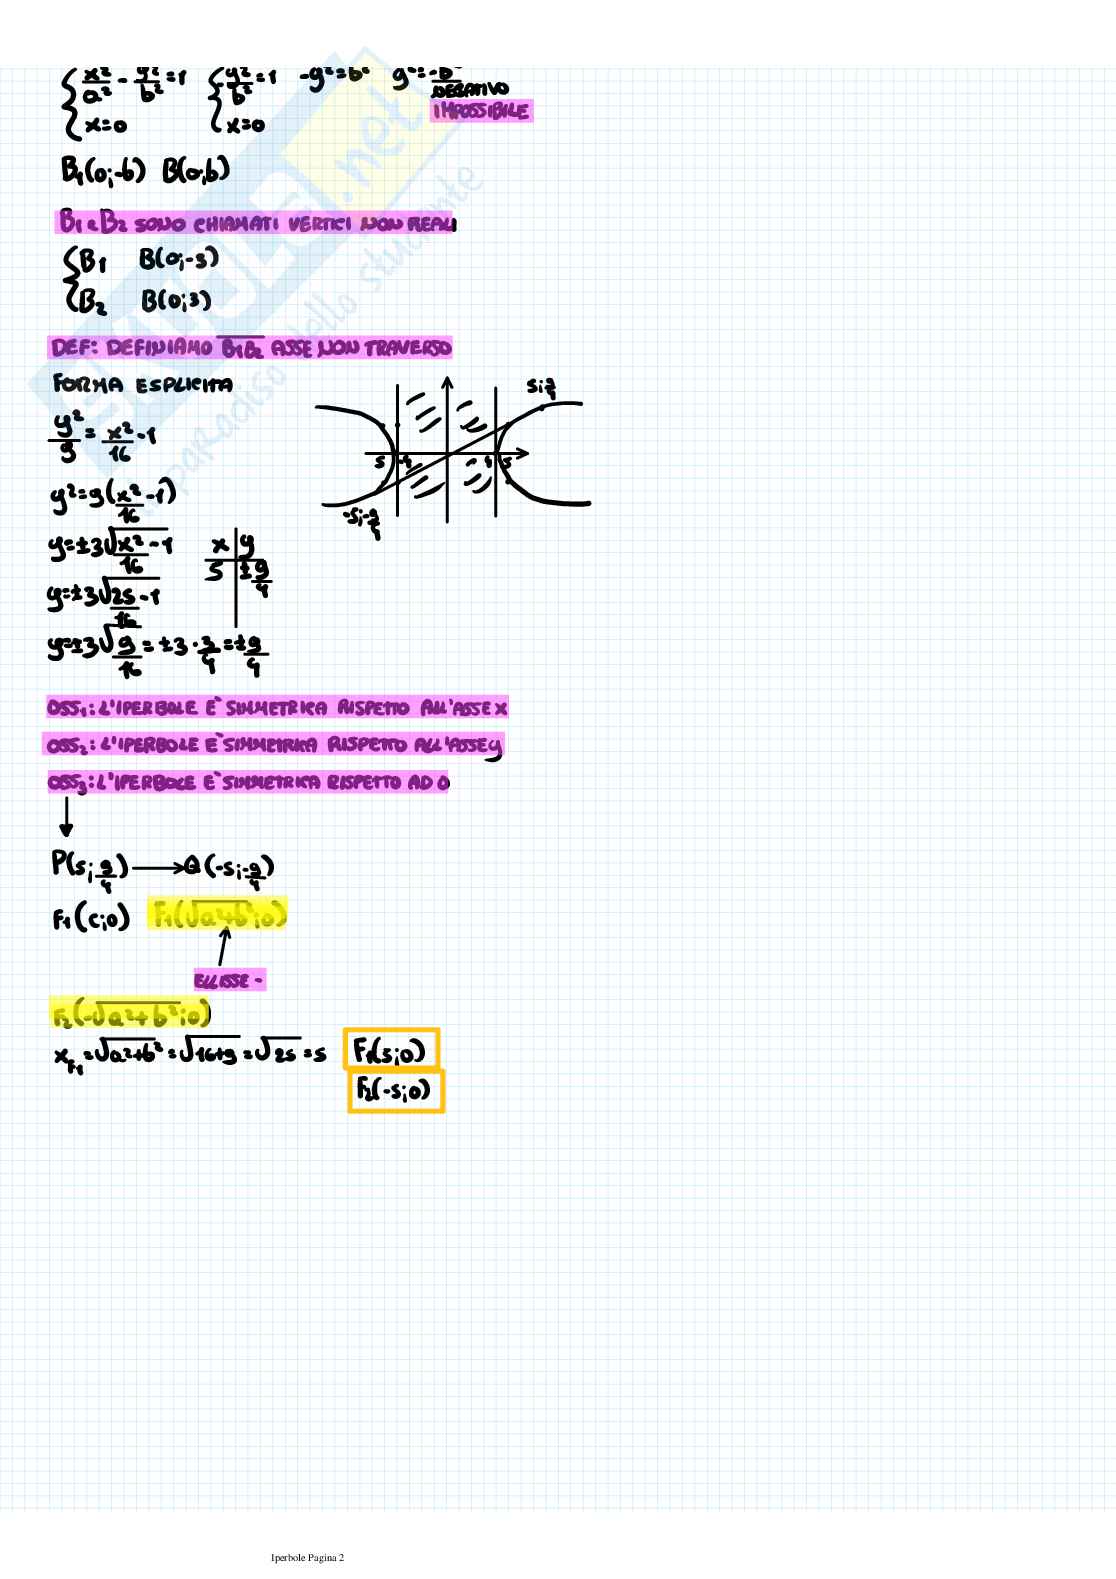 { x²/a² - y²/b² = 1 { -y²/b² = 1 -y² = b² y² = -b²
NEGATIVO
IMPOSSIBILE
x=0 x=0
B₁(0;-b) B(0;b)
B₁ e B₂ SONO CHIAMATI VERTICI NON REALI
{ B₁ B(0;-3)
B₂ B(0;3)
DEF: DEFINIAMO B₁B₂ ASSE NON TRAVERSO
FORMA ESPLICITA
y²/9 = x²/16 - 1
y² = 9(x²/16 - 1)
y = ±3√(x²/16 - 1)
y = ±3√(25/16 - 1)
y = ±3√(9/16) = ±3 · 3/4 = ±9/4
x | y
5 | ±9/4
5;9/4
5 -4 4 5
-5;-9/4
OSS₁: L'IPERBOLE E' SIMMETRICA RISPETTO ALL'ASSE X
OSS₂: L'IPERBOLE E' SIMMETRICA RISPETTO ALL'ASSE y
OSS₃: L'IPERBOLE E' SIMMETRICA RISPETTO AD O
P(5;9/4) → Q(-5;-9/4)
F₁(c;0) F₁(√(a²+b²);0)
ELLISSE -
F₂(-√(a²+b²);0)
x_F₁ = √(a²+b²) = √(16+9) = √25 = 5 F₁(5;0)
F₂(-5;0)
SKUOLA.net
il paradiso dello studente
Iperbole Pagina 2